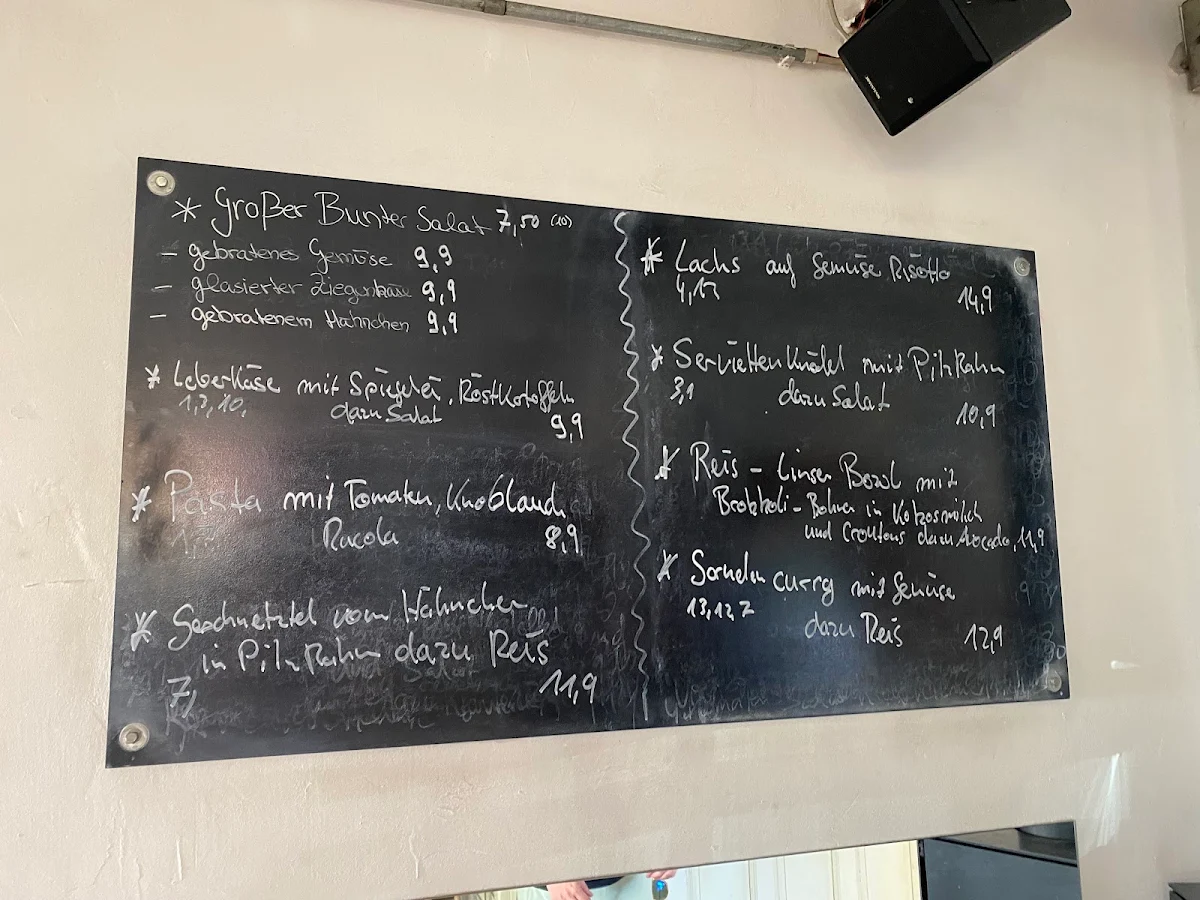 * Großer Bunter Salat 7,50 (10)
- gebratenes Gemüse 9,9
- glasierter Ziegenkäse 9,9
- gebratenem Hähnchen 9,9
* Leberkäse mit Spiegelei, Röstkotoffeln
1,3,10, dazu Salat
9,9
* Pasta mit Tomaten, Knoblauch
Rucola 8,9
* Geschnetztel vom Hähnchen
in PilzRahm dazu Reis
7) 11,9
* Lachs auf Gemüse Risotto
4,12 14,9
* Serviettenknödel mit PilzRahm
3,1 dazu Salat
10,9
* Reis - Linsen Bowl mit
Brokkoli - Bohnen in Kokosmilch
und Croutons dazu Avocado, 11,9
* curry mit Gemüse
13,12,7
dazu Reis 12,9